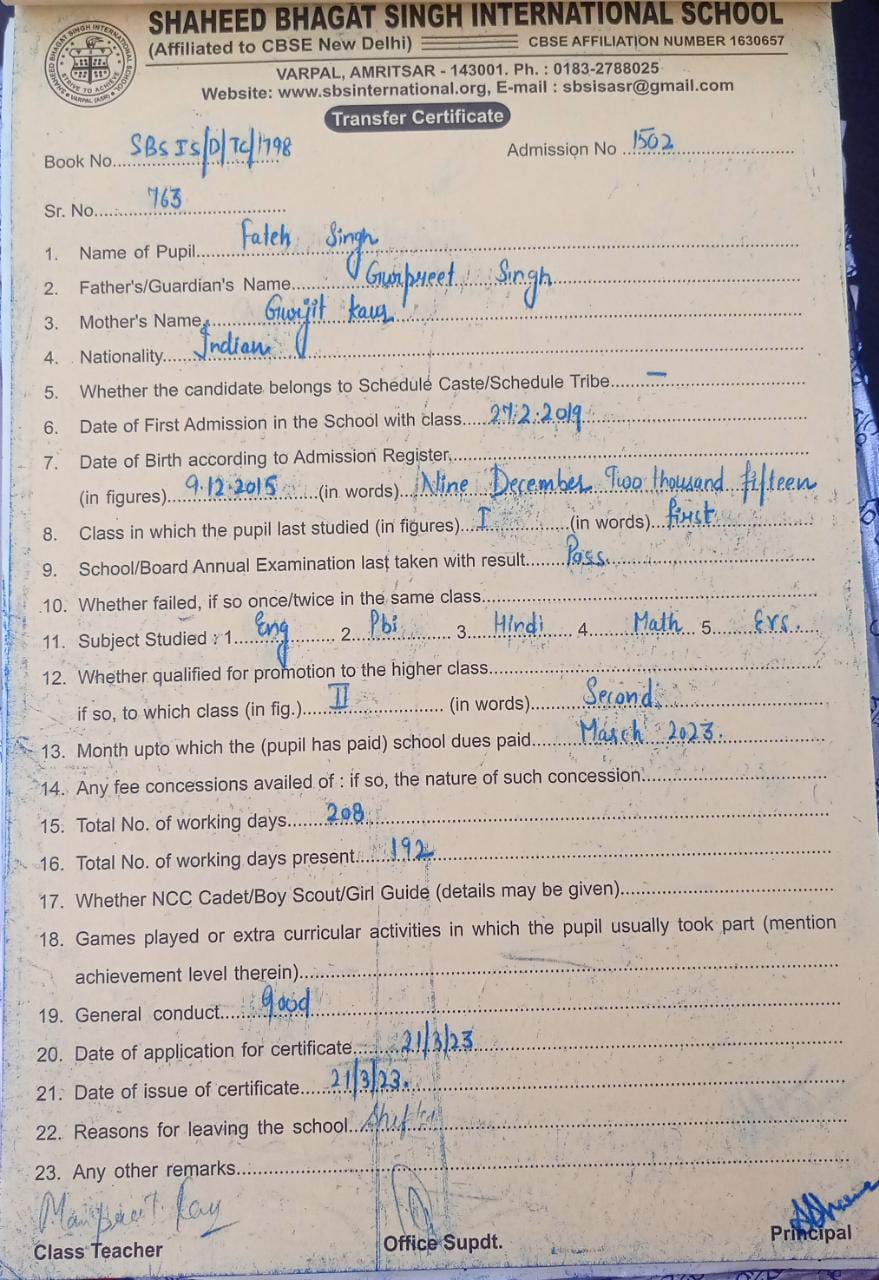 SHAHEED BHAGAT SINGH INTERNATIONAL SCHOOL
(Affiliated to CBSE New Delhi) CBSE AFFILIATION NUMBER 1630657
VARPAL, AMRITSAR - 143001. Ph. : 0183-2788025
Website: www.sbsinternational.org, E-mail : sbsisasr@gmail.com
Transfer Certificate
Book No. SBS IS/D/TC/1798 Admission No 1502
Sr. No. 763
1. Name of Pupil Fateh Singh
2. Father's/Guardian's Name Gurpreet Singh
3. Mother's Name Gurjit Kaur
4. Nationality Indian
5. Whether the candidate belongs to Schedule Caste/Schedule Tribe —
6. Date of First Admission in the School with class 27.2.2019
7. Date of Birth according to Admission Register
(in figures) 9.12.2015 (in words) Nine December Two thousand fifteen
8. Class in which the pupil last studied (in figures) I (in words) first
9. School/Board Annual Examination last taken with result Pass
10. Whether failed, if so once/twice in the same class
11. Subject Studied : 1 Eng 2 Pbi 3 Hindi 4 Math 5 Evs.
12. Whether qualified for promotion to the higher class
if so, to which class (in fig.) II (in words) Second
13. Month upto which the (pupil has paid) school dues paid March 2023.
14. Any fee concessions availed of : if so, the nature of such concession
15. Total No. of working days 208
16. Total No. of working days present 192
17. Whether NCC Cadet/Boy Scout/Girl Guide (details may be given)
18. Games played or extra curricular activities in which the pupil usually took part (mention
achievement level therein)
19. General conduct good
20. Date of application for certificate 21/3/23
21. Date of issue of certificate 21/3/23.
22. Reasons for leaving the school
23. Any other remarks
Class Teacher Office Supdt. Principal